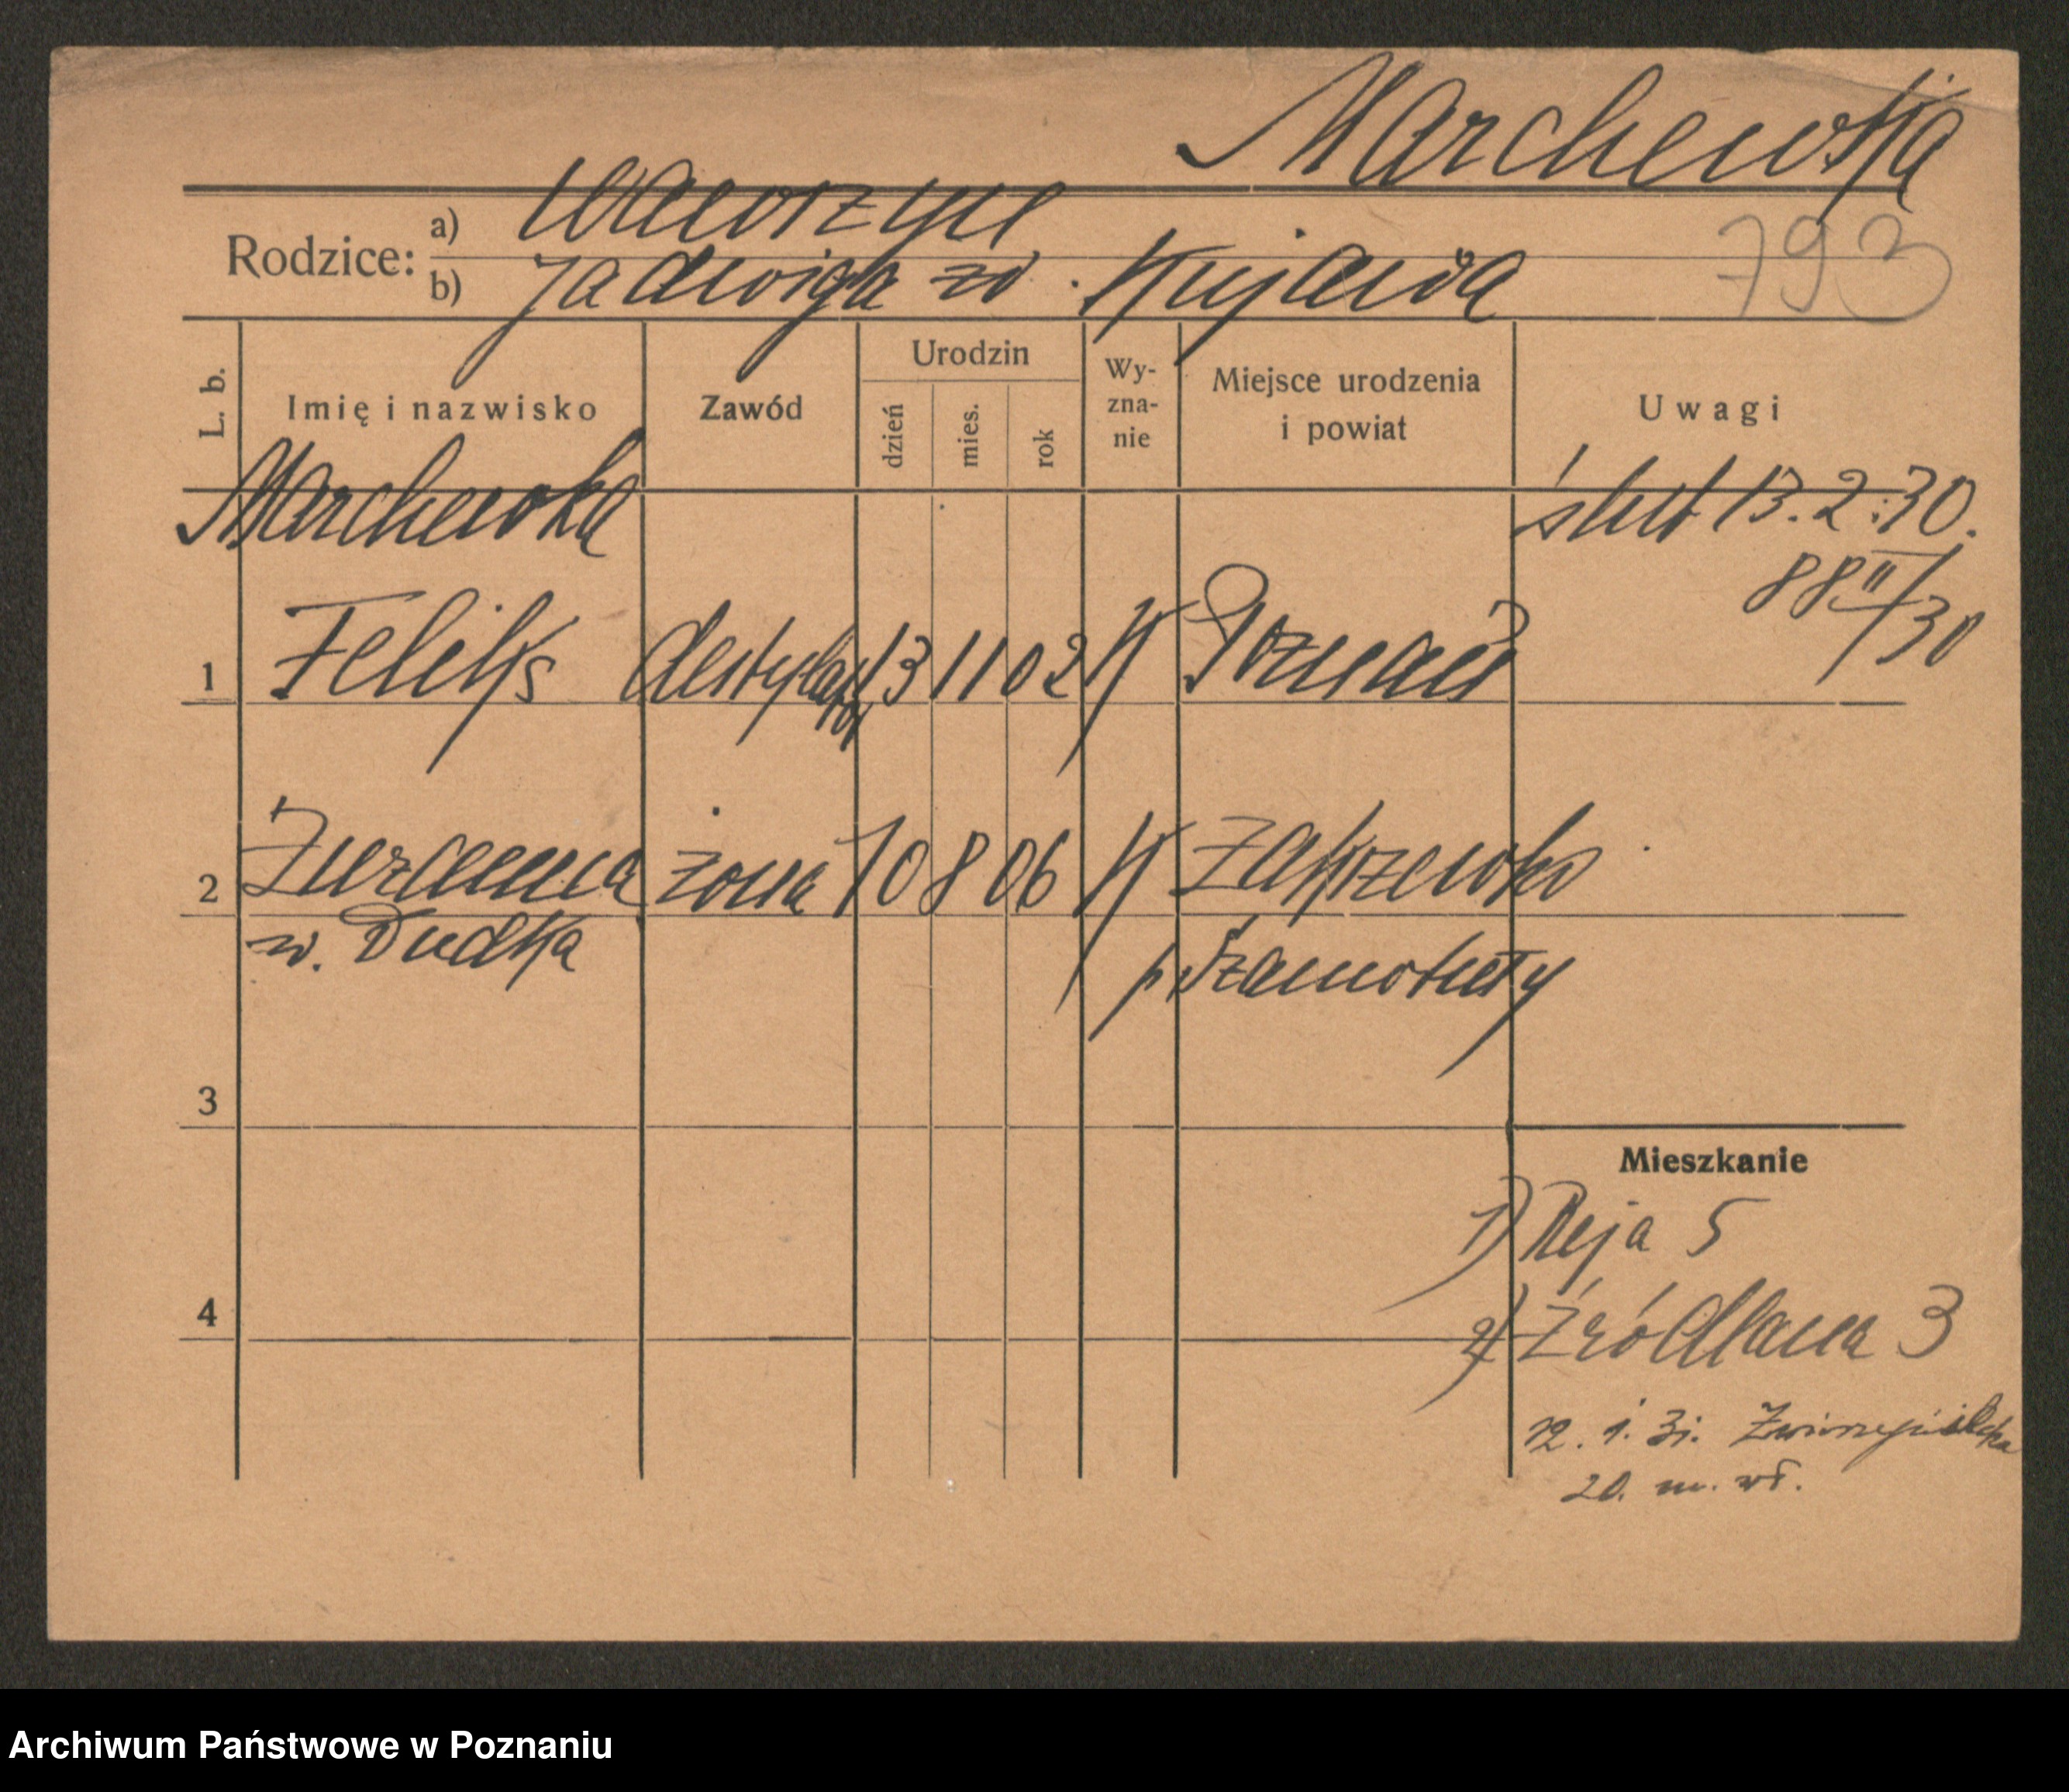 Marchewka
Rodzice: a) Wawrzyn
b) Jadwiga zd. Kujawa
793
L. b. Imię i nazwisko Zawód Urodzin dzień mies. rok Wy-zna-nie Miejsce urodzenia i powiat Uwagi
Marchewka ślub 13.2.30.
88 II/30
1 Feliks destylator 13 11 02 K Poznań
2 Zuzanna żona 10 8 06 K Zakrzewko
w. Dudka p. Szamotuły
3
Mieszkanie
1) Reja 5
4 2) Źródlana 3
12. 1. 31. Zwierzyniecka
20. m. wł.
Archiwum Państwowe w Poznaniu